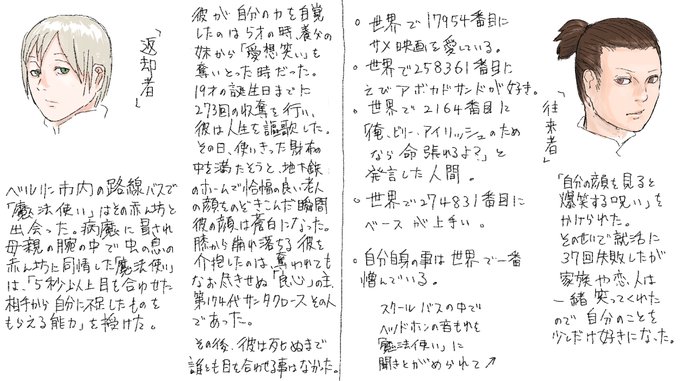 「返却者」
ベルリン市内の路線バスで
「魔法使い」はその赤ん坊と
出会った。病魔に冒され
母親の腕の中で虫の息の
赤ん坊に同情した「魔法使い」
は、「5秒以上目を合わせた
相手から自分に不足したものを
もらえる能力」を授けた。
彼が自分の力を自覚
したのは5才の時、養父の
妹から「愛想笑い」を
奪いとった時だった。
19才の誕生日までに
273回の収奪を行い、
彼は人生を謳歌した。
その日、使いきった財布の
中を満たそうと、地下鉄
のホームで恰幅の良い老人
の顔をのぞきこんだ瞬間
彼の顔は蒼白になった。
膝から崩れ落ちる彼を
介抱したのは、奪われても
なお尽きせぬ「良心」の主、
第174代サンタクロースその人
であった。
その後、彼は死ぬまで
誰とも目を合わせる事はなかった。
○世界で17954番目に
サメ映画を愛している。
○世界で258361番目に
えびアボカドサンドが好き。
○世界で2164番目に
「俺、ビリー・アイリッシュのため
なら命張れるよ?」と
発言した人間。
○世界で274831番目に
ベースが上手い。
○自分自身の事は世界で一番
憎んでいる。
スクールバスの中で
ヘッドホンの音もれを
「魔法使い」に
聞きとがめられて↗
「往来者」
「自分の顔を見ると
爆笑する呪い」を
かけられた。
そのせいで就活に
37回失敗したが
家族や恋人は
一緒に笑ってくれた
ので自分のことを
少しだけ好きになった。